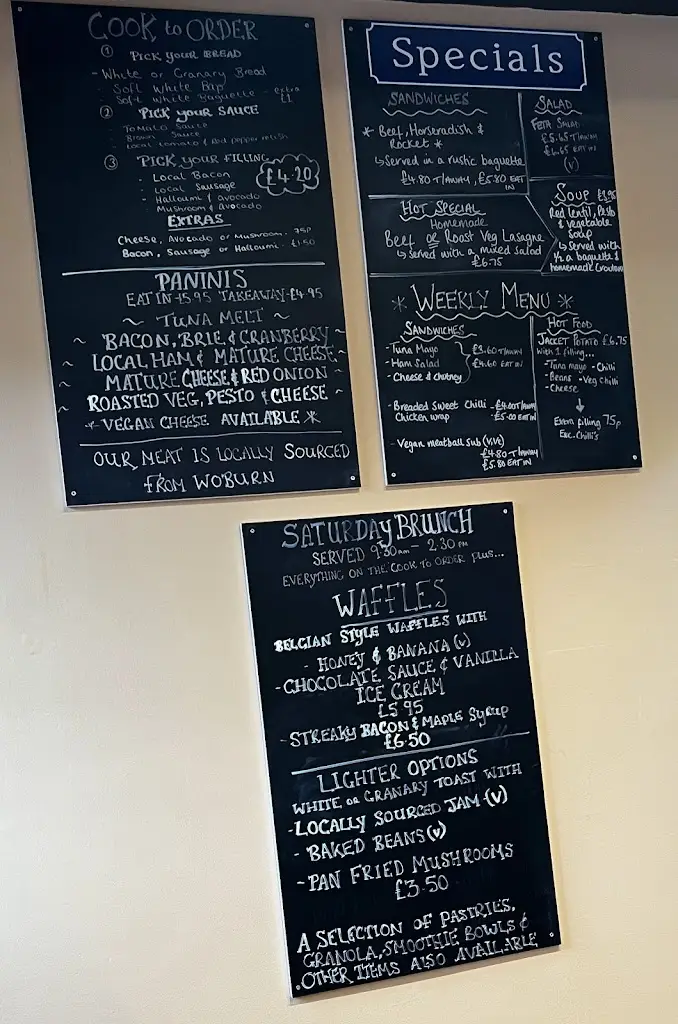 COOK to ORDER
① PICK YOUR BREAD
- White or Granary Bread
- Soft White Bap
- Soft White Baguette - extra £1
② PICK YOUR SAUCE
- Tomato Sauce
- Brown Sauce
- Local tomato & Red pepper relish
③ PICK YOUR FILLING
£4.20
- Local Bacon
- Local Sausage
- Halloumi & avocado
- Mushroom & avocado
EXTRAS
Cheese, Avocado or Mushroom - 75p
Bacon, Sausage or Halloumi - £1.50
PANINIS
EAT IN £5.95 TAKEAWAY £4.95
~ TUNA MELT ~
~ BACON, BRIE & CRANBERRY ~
~ LOCAL HAM & MATURE CHEESE ~
~ MATURE CHEESE & RED ONION ~
~ ROASTED VEG, PESTO & CHEESE ~
* VEGAN CHEESE AVAILABLE *
OUR MEAT IS LOCALLY SOURCED
FROM WOBURN
Specials
SANDWICHES
* Beef, Horseradish &
Rocket *
↳ Served in a rustic baguette
£4.80 T/AWAY, £5.80 EAT
IN
SALAD
FETA SALAD
£5.65 T/AWAY
£6.65 EAT IN
(V)
HOT SPECIAL
Homemade
Beef or Roast Veg Lasagne
↳ Served with a mixed salad
£6.75
SOUP £4.95
Red lentil, Pesto
& vegetable
Soup
↳ Served with
1/2 a baguette &
homemade croutons
* WEEKLY MENU *
SANDWICHES
- Tuna Mayo
- Ham Salad
- Cheese & chutney
£3.60 T/AWAY
£4.60 EAT IN
- Breaded Sweet Chilli - £4.00 T/AWAY
Chicken wrap - £5.00 EAT IN
- Vegan meatball sub (V,VE)
£4.80 T/AWAY
£5.80 EAT IN
HOT FOOD
JACKET POTATO £6.75
with 1 filling...
- Tuna mayo - Chilli
- Beans - Veg chilli
- Cheese
↓
Extra filling 75p
Exc. Chilli's
SATURDAY BRUNCH
SERVED 9:30am - 2:30 PM
EVERYTHING ON THE COOK TO ORDER plus...
WAFFLES
BELGIAN STYLE WAFFLES WITH
- HONEY & BANANA (V)
- CHOCOLATE SAUCE & VANILLA
ICE CREAM
£5.95
- STREAKY BACON & MAPLE Syrup
£6.50
LIGHTER OPTIONS
WHITE OR GRANARY TOAST WITH
- LOCALLY SOURCED JAM (V)
- BAKED BEANS (V)
- PAN FRIED MUSHROOMS
£3.50
A SELECTION OF PASTRIES,
GRANOLA, SMOOTHIE BOWLS &
OTHER ITEMS ALSO AVAILABLE